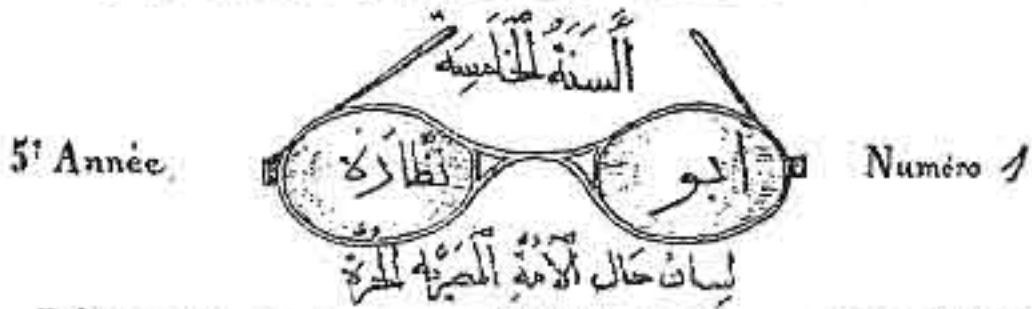 السَّنَةُ الْخَامِسَة
5e Année
ابو نظَّارَة
Numéro 1
لِسان حَال الأُمَّةِ المَصْرِيَّه الحُرَّة